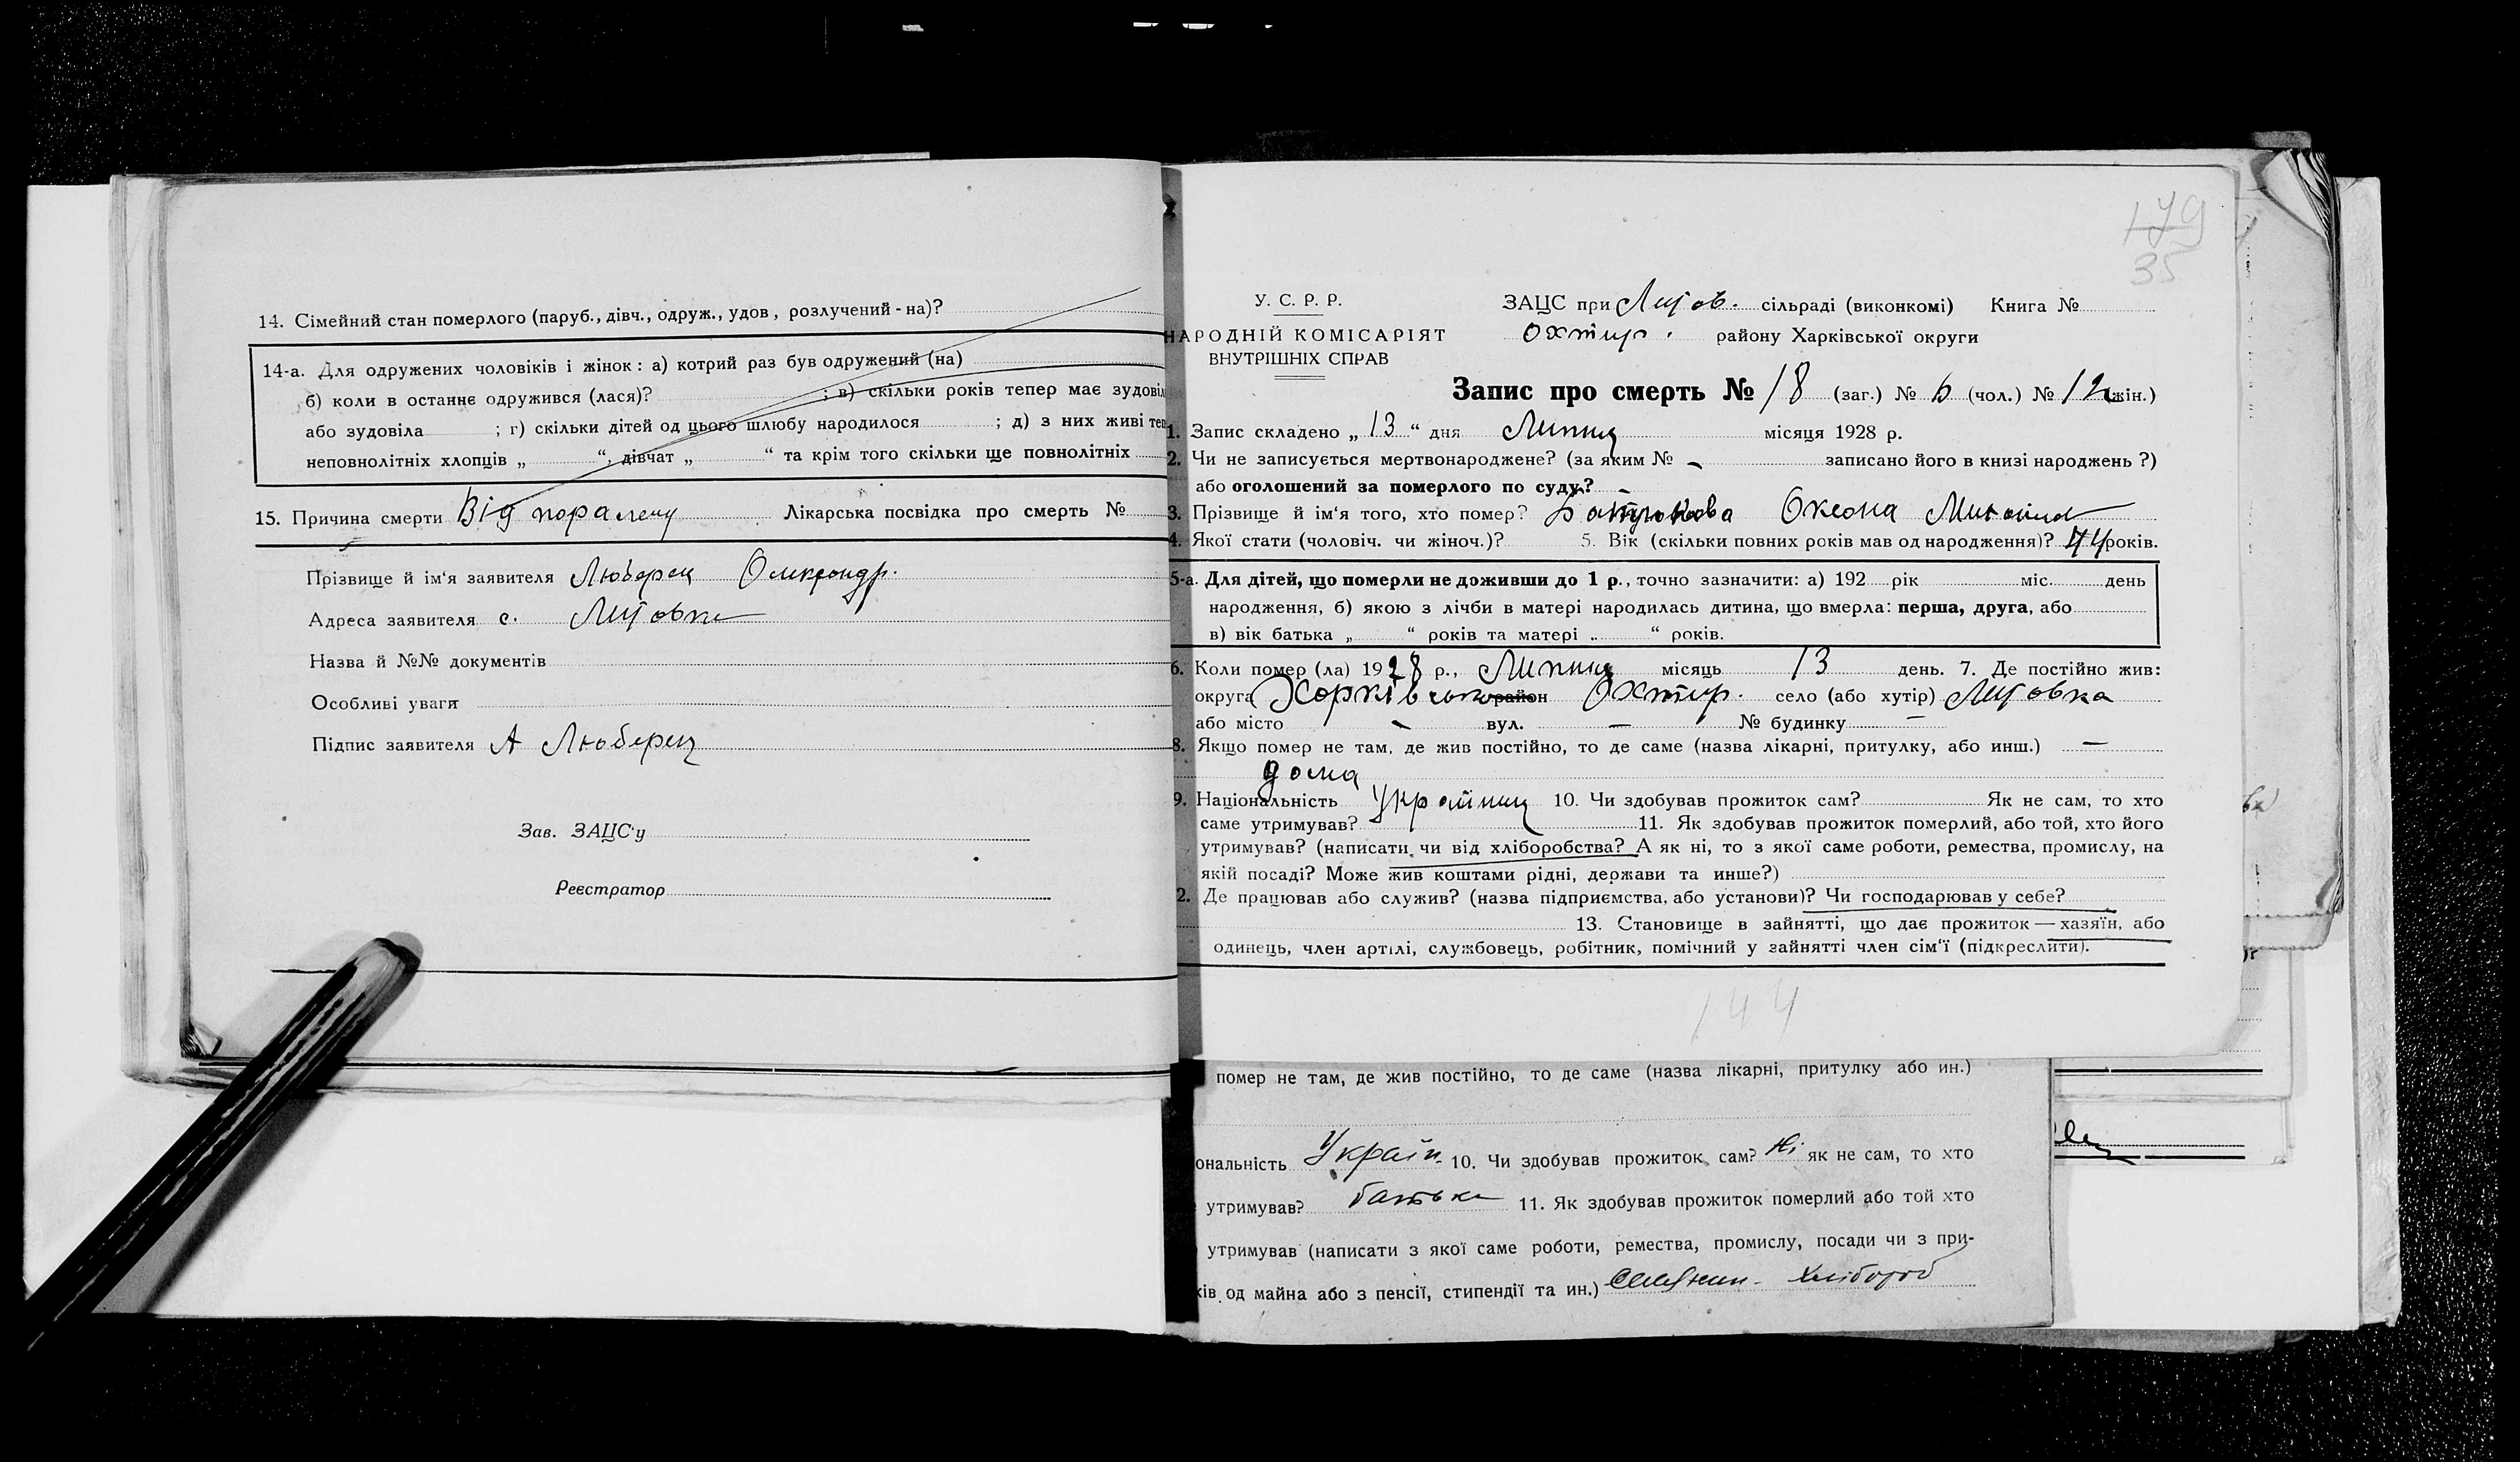 14. Сімейний стан померлого (паруб., дівч., одруж., удов, розлучений-на)?
14-а. Для одружених чоловіків і жінок: а) котрий раз був одружений (на)
б) коли в останнє одружився (лася)? ; в) скільки років тепер має
або зудовіла ; г) скільки дітей од цього шлюбу народилося ; д) з них живі
неповнолітніх хлопців „ “, дівчат „ “ та крім того скільки ще повнолітніх
15. Причина смерти Від Лікарська посвідка про смерть №
Прізвище й ім'я заявителя Люберец Олександр.
Адреса заявителя с. Литовка
Назва й №№ документів
Особливі уваги
Підпис заявителя А Люберец
Зав. ЗАЦС'у
Реєстратор
179
35
У. С. Р. Р.
НАРОДНІЙ КОМІСАРІЯТ
ВНУТРІШНІХ СПРАВ
ЗАЦС при Литов. сільраді (виконкомі) Книга №
Охтир. району Харківської округи
Запис про смерть № 18 (заг.) № 6 (чол.) № 12 жін.)
1. Запис складено „ 13 “ дня Липня місяця 1928 р.
2. Чи не записується мертвонароджене? (за яким № - записано його в книзі народжень?)
або оголошений за померлого по суду?
3. Прізвище й ім'я того, хто помер?
4. Якої стати (чоловіч. чи жіноч.)? 5. Вік (скільки повних років мав од народження)? 44 років.
5-а. Для дітей, що померли не доживши до 1 р., точно зазначити: а) 192 рік міс. день
народження, б) якою з лічби в матері народилась дитина, що вмерла: перша, друга, або
в) вік батька „ “ років та матері „ “ років.
6. Коли помер (ла) 1928 р., Липня місяць 13 день. 7. Де постійно жив:
округа Харківська район Охтир. село (або хутір) Литовка
або місто - вул. — № будинку —
8. Якщо помер не там, де жив постійно, то де саме (назва лікарні, притулку, або инш.) —
дома
9. Національність 10. Чи здобував прожиток сам? Як не сам, то хто
саме утримував? 11. Як здобував прожиток померлий, або той, хто його
утримував? (написати, чи від хліборобства? А як ні, то з якої саме роботи, ремества, промислу, на
якій посаді? Може жив коштами рідні, держави та инше?)
2. Де працював або служив? (назва підприємства, або установи)? Чи господарював у себе?
13. Становище в зайнятті, що дає прожиток — хазяїн, або
одинець, член артілі, службовець, робітник, помічний у зайнятті член сім'ї (підкреслити).
144
помер не там, де жив постійно, то де саме (назва лікарні, притулку або ин.)
ональність Україн. 10. Чи здобував прожиток сам? Ні як не сам, то хто
утримував? батьки 11. Як здобував прожиток померлий або той хто
утримував (написати з якої саме роботи, ремества, промислу, посади чи з при-
ків од майна або з пенсії, стипендії та ин.) хлібороб